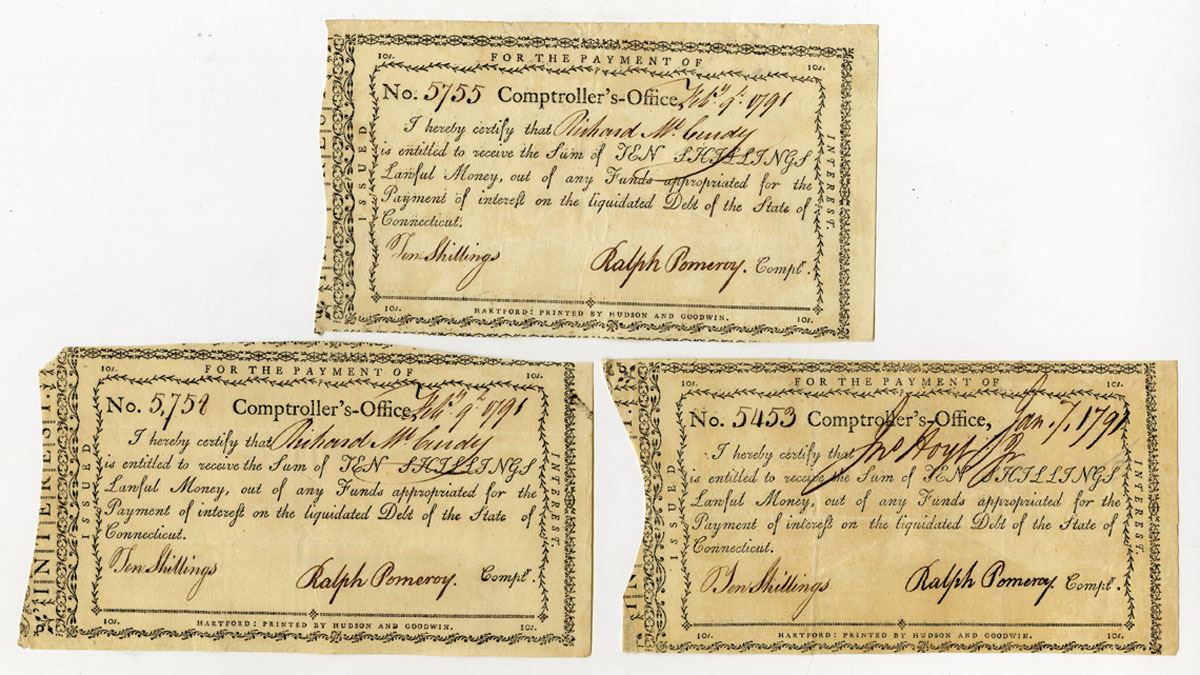 10s. FOR THE PAYMENT OF 10s.
No. 5755 Comptroller's-Office, Feby. 9th. 1791
I hereby certify that Richard Mc. Curdy
is entitled to receive the Sum of TEN SHILLINGS
Lawful Money, out of any Funds appropriated for the
Payment of interest on the liquidated Debt of the State of
Connecticut.
Ten Shillings Ralph Pomeroy. Comptr.
10s. HARTFORD: PRINTED BY HUDSON AND GOODWIN. 10s.
ISSUED
INTEREST.
10s. FOR THE PAYMENT OF 10s.
No. 5,758 Comptroller's-Office, Feby. 9th. 1791
I hereby certify that Richard Mc. Curdy
is entitled to receive the Sum of TEN SHILLINGS
Lawful Money, out of any Funds appropriated for the
Payment of interest on the liquidated Debt of the State of
Connecticut.
Ten Shillings Ralph Pomeroy. Comptr.
10s. HARTFORD: PRINTED BY HUDSON AND GOODWIN. 10s.
ISSUED
INTEREST.
10s. FOR THE PAYMENT OF 10s.
No. 5453 Comptroller's-Office, Jan. 7, 1791
I hereby certify that Jno Hoyt Jr
is entitled to receive the Sum of TEN SHILLINGS
Lawful Money, out of any Funds appropriated for the
Payment of interest on the liquidated Debt of the State of
Connecticut.
Ten Shillings Ralph Pomeroy. Comptr.
10s. HARTFORD: PRINTED BY HUDSON AND GOODWIN. 10s.
ISSUED
INTEREST.